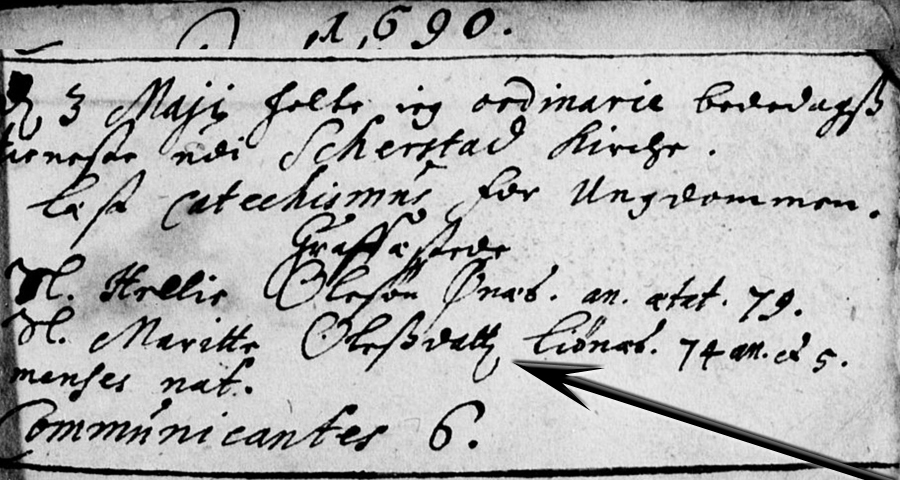 1690.
D 3 Maji holte ieg ordinarie bededagß
tieneste udi Scherstad Kirche.
Læst Catechismus for Ungdommen.
Graffæstede
Sl. Hellie Olesøn Ønæs. an. ætat. 79.
Sl. Maritte Oleßdatt Liønæs. 74 an. et 5.
menses nat.
Communicantes 6.